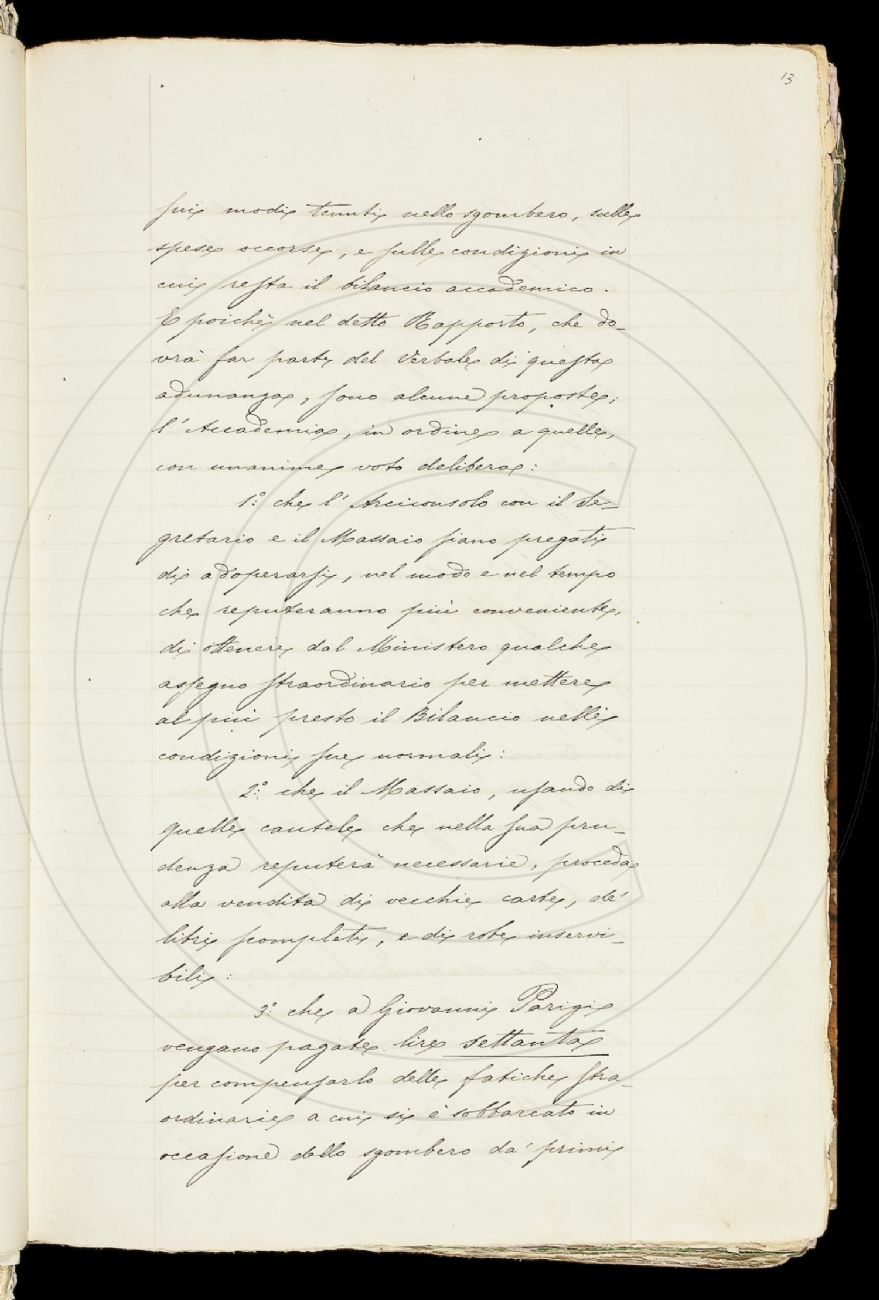 13
sui modi tenuti nello sgombero, sulle
spese occorse, e sulle condizioni in
cui resta il bilancio accademico.
E poichè nel detto Rapporto, che do-
vrà far parte del Verbale di questa
adunanza, sono alcune proposte;
l'Accademia, in ordine a quelle,
con unanime voto delibera:
1.° che l'Arciconsolo con il Se-
gretario e il Massaio siano pregati
di adoperarsi, nel modo e nel tempo
che reputeranno più conveniente,
di ottenere dal Ministero qualche
assegno straordinario per mettere
al più presto il Bilancio nelle
condizioni sue normali:
2.° che il Massaio, usando di
quelle cautele che nella sua pru-
denza reputerà necessarie, proceda
alla vendita di vecchie carte, de'
libri scompleti, e di robe inservi-
bili:
3.° che a Giovanni Parigi
vengano pagate lire settanta
per compensarlo delle fatiche stra-
ordinarie a cui si è sobbarcato in
occasione dello sgombero da' primi